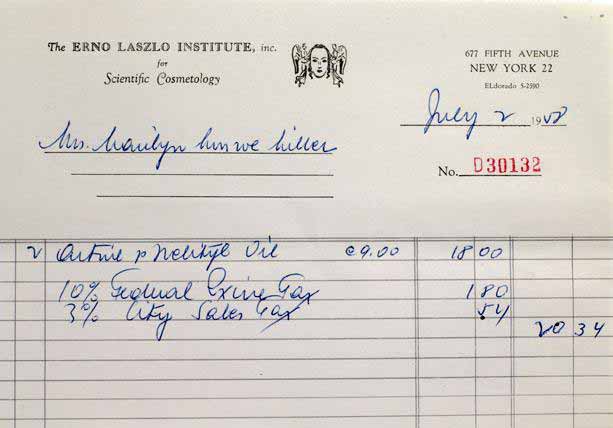 The ERNO LASZLO INSTITUTE, inc.
for
Scientific Cosmetology
677 FIFTH AVENUE
NEW YORK 22
ELdorado 5-2590
July 2 1958
Mrs. Marilyn Monroe Miller
No. D30132
2 Active pHelityl Oil @9.00 18 00
10% Federal Excise Tax 1 80
3% City Sales Tax 54
20 34